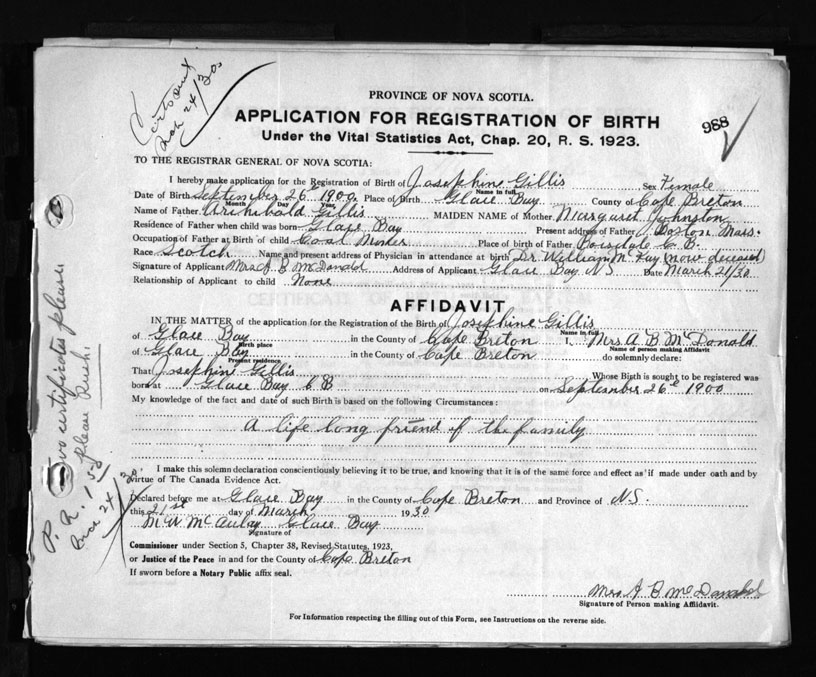 Cert sent
Mch 24/30
PROVINCE OF NOVA SCOTIA.
988
APPLICATION FOR REGISTRATION OF BIRTH
Under the Vital Statistics Act, Chap. 20, R. S. 1923.
TO THE REGISTRAR GENERAL OF NOVA SCOTIA:
I hereby make application for the Registration of Birth of Josephine Gillis Sex Female
Name in full
Date of Birth September 26th 1900. Place of Birth Glace Bay County of Cape Breton
Month Day Year
Name of Father Archibald Gillis MAIDEN NAME of Mother Margaret Johnston
Residence of Father when child was born Glace Bay Present address of Father Boston Mass.
Occupation of Father at Birth of child Coal Miner Place of birth of Father Boisdale C. B.
Race Scotch Name and present address of Physician in attendance at birth Dr. William McKay (now deceased)
Signature of Applicant Mrs A B McDonald Address of Applicant Glace Bay NS Date March 21/30
Relationship of Applicant to child None
AFFIDAVIT
IN THE MATTER of the application for the Registration of the Birth of Josephine Gillis
Name in full
of Glace Bay in the County of Cape Breton I, Mrs A B McDonald
Birth place Name of person making Affidavit
of Glace Bay in the County of Cape Breton do solemnly declare:
Present residence
That Josephine Gillis Whose Birth is sought to be registered was
born at Glace Bay C B on September 26th 1900
My knowledge of the fact and date of such Birth is based on the following Circumstances:
A life long friend of the family
I make this solemn declaration conscientiously believing it to be true, and knowing that it is of the same force and effect as if made under oath and by
virtue of The Canada Evidence Act.
Declared before me at Glace Bay in the County of Cape Breton and Province of NS.
this 21st day of March 1930
M W McAulay Glace Bay
Signature of
Commissioner under Section 5, Chapter 38, Revised Statutes, 1923,
or Justice of the Peace in and for the County of Cape Breton
If sworn before a Notary Public affix seal.
Mrs A B McDonald
Signature of Person making Affidavit.
For Information respecting the filling out of this Form, see Instructions on the reverse side.
Two certificates please
please Rush.
P. R. 150
24/30